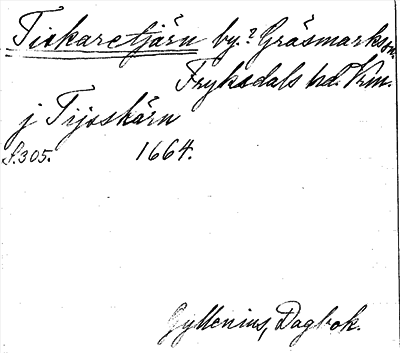 Tiskaretjärn by.? Gräsmarks sn.
Fryksdals hd. Vrm.
j Tijsskärn
S.305. 1664.
Gyllenius, Dagbok.